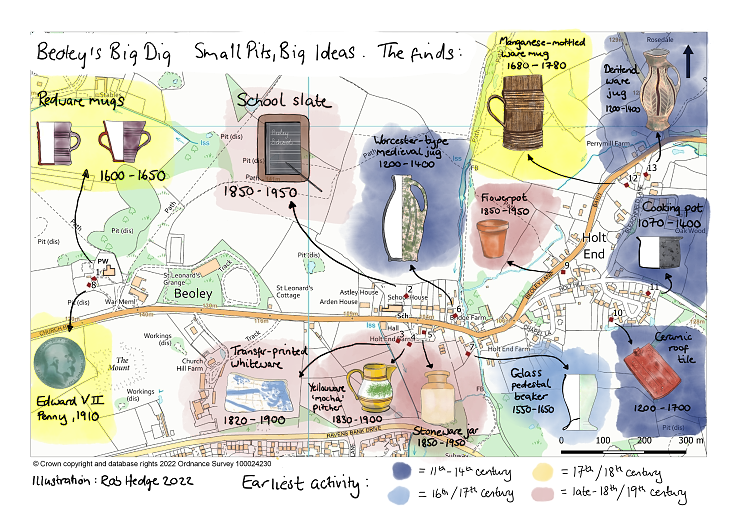 Beoley's Big Dig Small Pits, Big Ideas. The finds:
Manganese-mottled
ware mug
1680 - 1780
Rosedale
129m
Deritend
ware
jug
1200-1400
Stables
Redware mugs
1600 - 1650
Iss
School slate
Beoley
School
1850 - 1950
Pit (dis)
Pit (dis)
Path
Worcester-type
medieval jug
1200 - 1400
Path
Iss
FB
Perrymill Farm
Flowerpot
1850-1950
12
13
Cooking pot
1070 - 1400
Oak Wood
Holt
End
Path
Path
Pit (dis)
Pit (dis)
Pit (dis)
PW
1
8
Pit (dis)
War Meml
St Leonard's
Grange
Track
Beoley
St Leonard's
Cottage
Astley House
Arden House
2
School House
Sch
6
Bridge Farm
9
BEOLEY
11
10
128m
CHURCH H
139m
130m
Iss
Hall
Holt End Farm
3
5
7
Holt End Farm
Workings
(dis)
Track
The
Mount
Church
Hill Farm
Workings
(dis)
Edward VII
Penny, 1910
Transfer-printed
whiteware
1820 - 1900
Yelloware
'mocha'
pitcher
1830-1900
Stoneware jar
1850-1950
FB
Glass
pedestal
beaker
1550-1650
Ceramic
roof
tile
1200 - 1700
Pit (dis)
RAVENS BANK DRIVE
0 100 200 300 m
© Crown copyright and database rights 2022 Ordnance Survey 100024230
Illustration: Rob Hedge 2022
Earliest activity:
= 11th-14th century
= 17th/18th century
= 16th/17th century
= late-18th/19th century